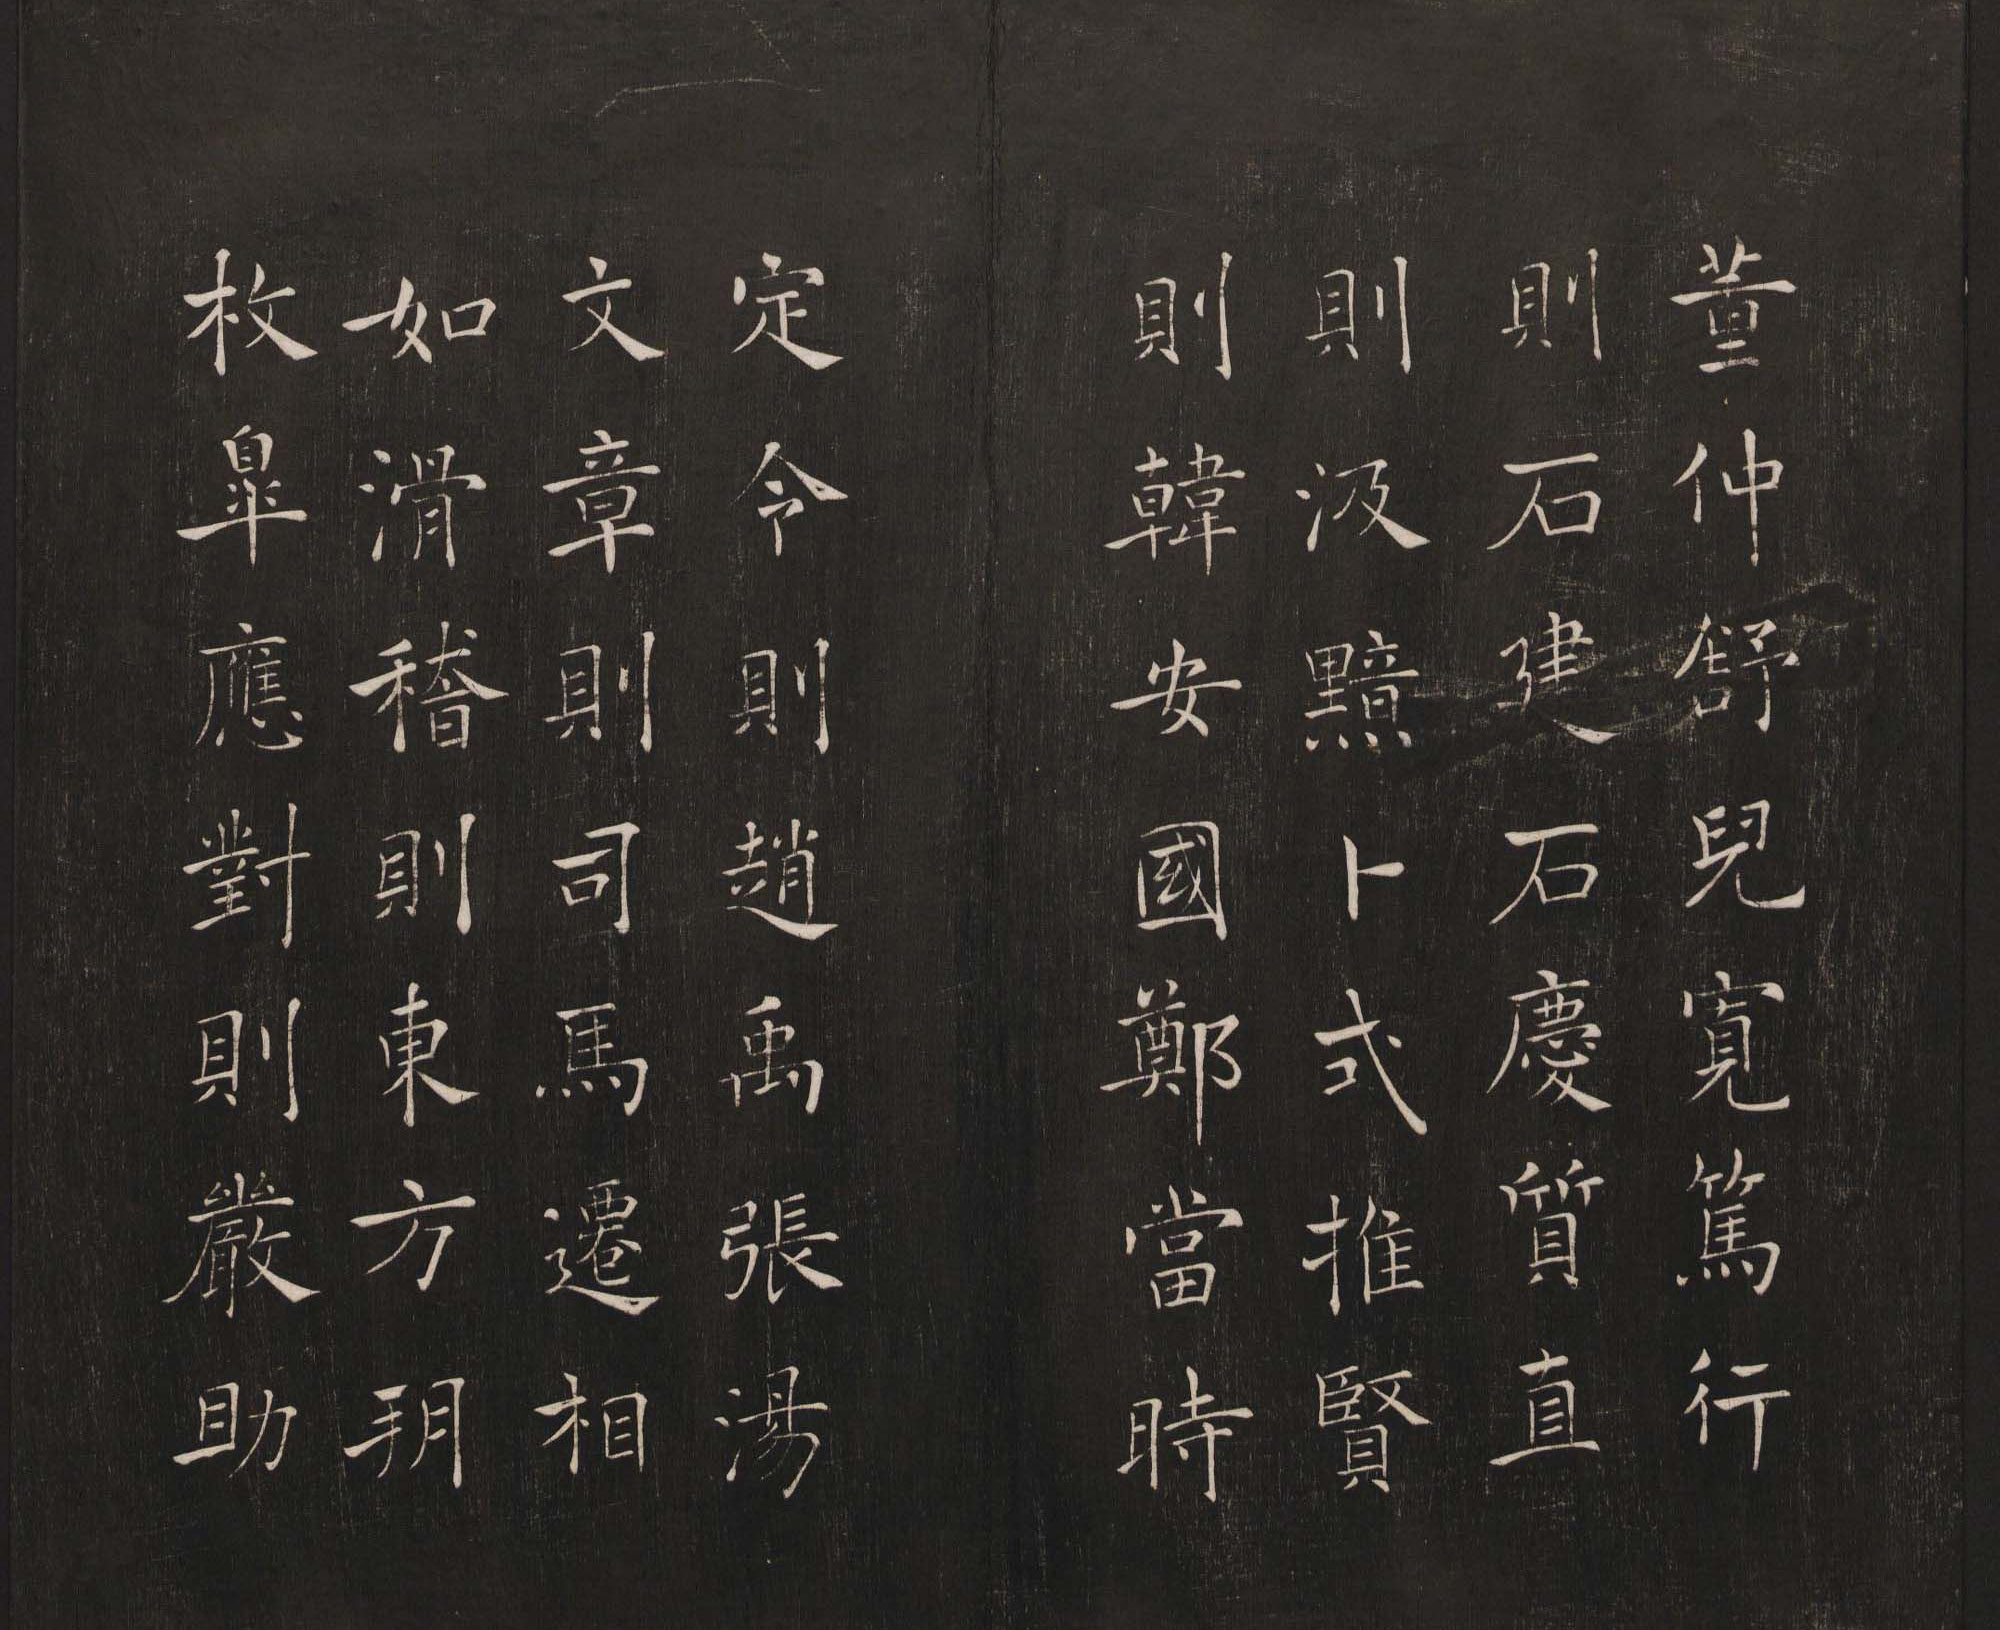 董仲舒兒寬篤行
則石建石慶質直
則汲黯卜式推賢
則韓安國鄭當時
定令則趙禹張湯
文章則司馬遷相
如滑稽則東方朔
枚皋應對則嚴助